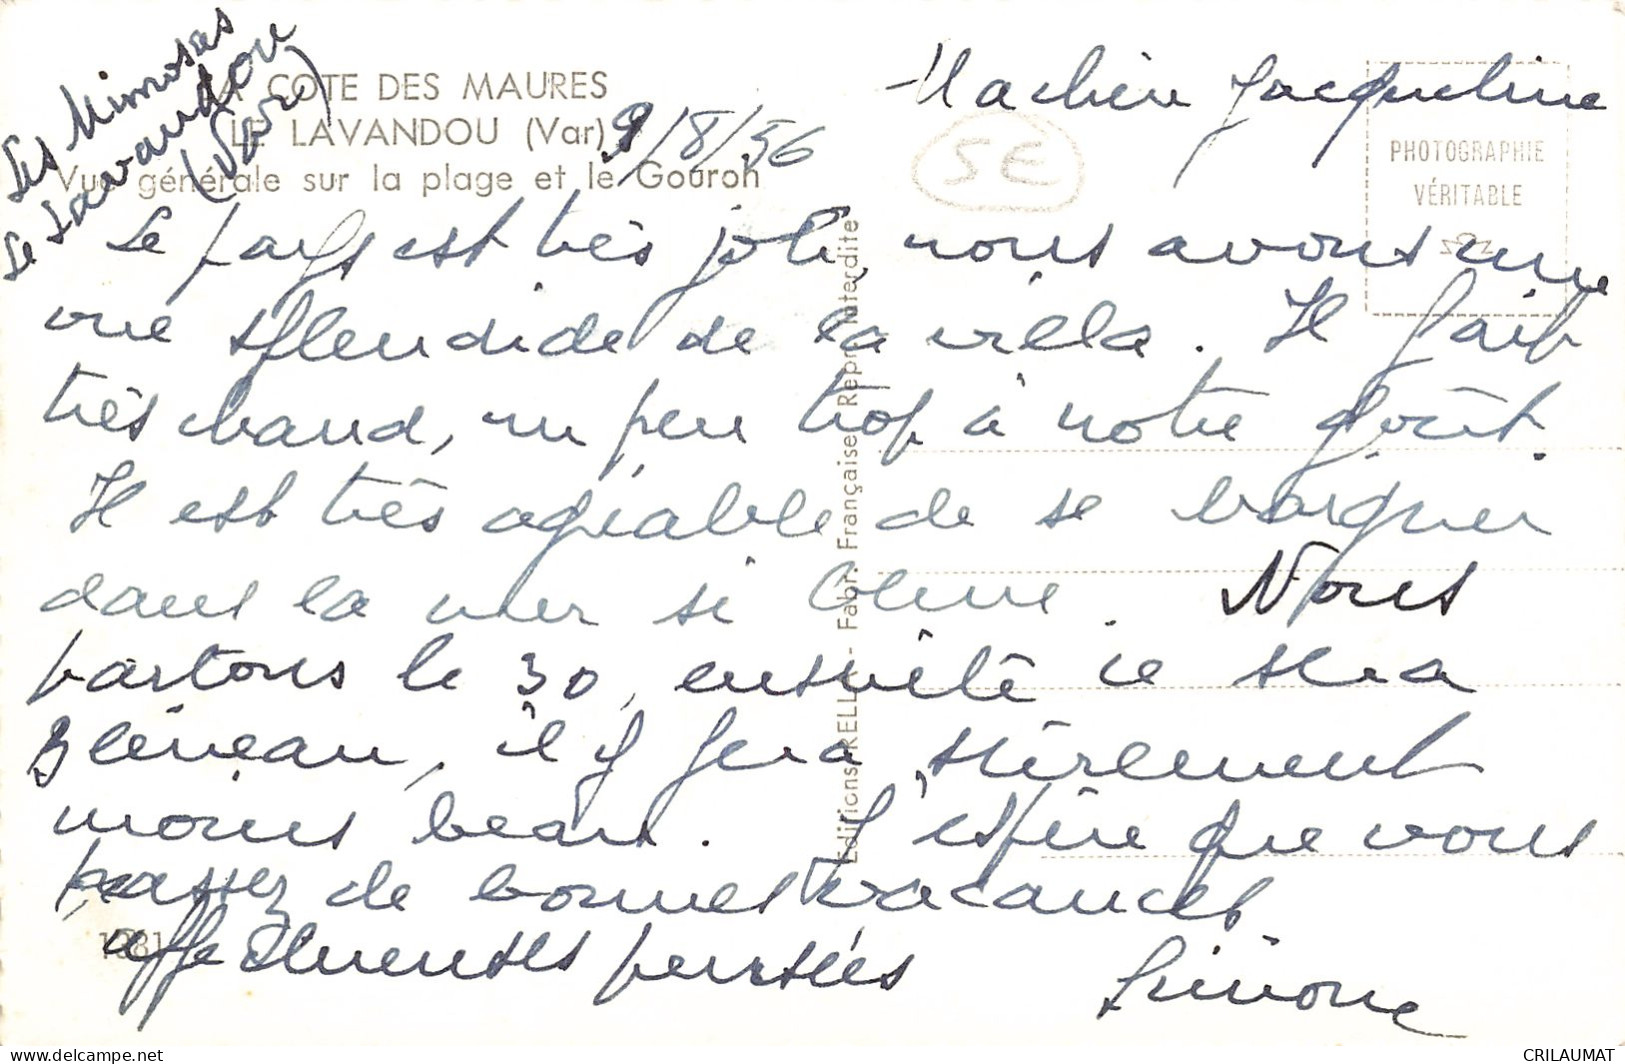 Les Mimosas
Le Lavandou
(Var)
LA COTE DES MAURES
LE LAVANDOU (Var)
Vue générale sur la plage et le Gouron
9/8/56
Ma chère Jacqueline
5€
PHOTOGRAPHIE
VÉRITABLE
Le pays est très joli, nous avons une
vue splendide de la villa. Il fait
très chaud, un peu trop à notre goût.
Il est très agréable de se baigner
dans la mer si bleue. Nous
partons le 30, ensuite ce sera
Bléneau, il y fera sûrement
moins beau. J'espère que vous
passez de bonnes vacances
affectueuses pensées
Simone
Editions RELLA - Fabr. Française Repr. Interdite
1281
CRILAUMAT
delcampe.net